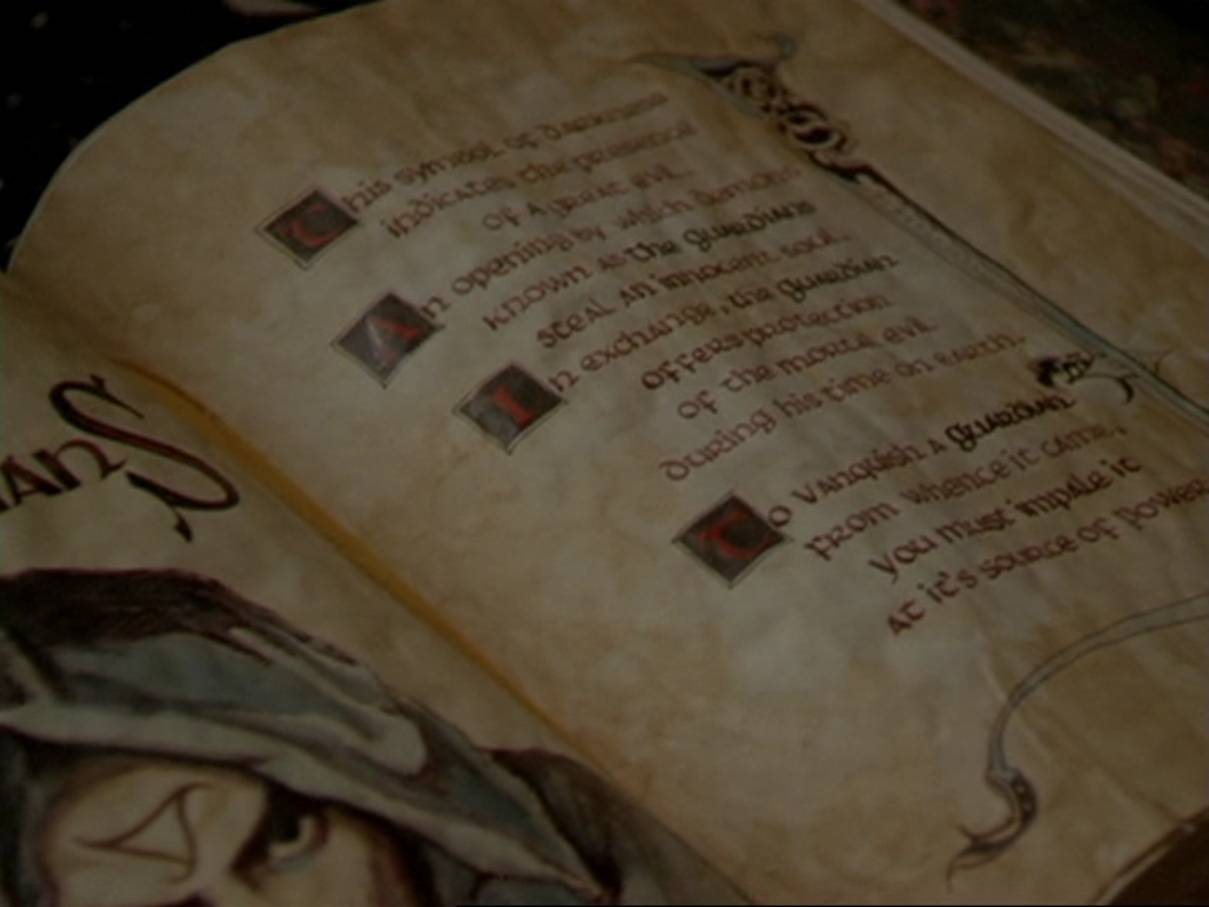 ANS
This symbol of darkness
indicates the presence
of a great evil.
An opening by which demons
known as the Guardians
steal an innocent soul.
In exchange, the Guardian
offers protection
of the mortal evil
during his time on earth.
To vanquish a Guardian
from whence it came,
you must impale it
at it's source of power